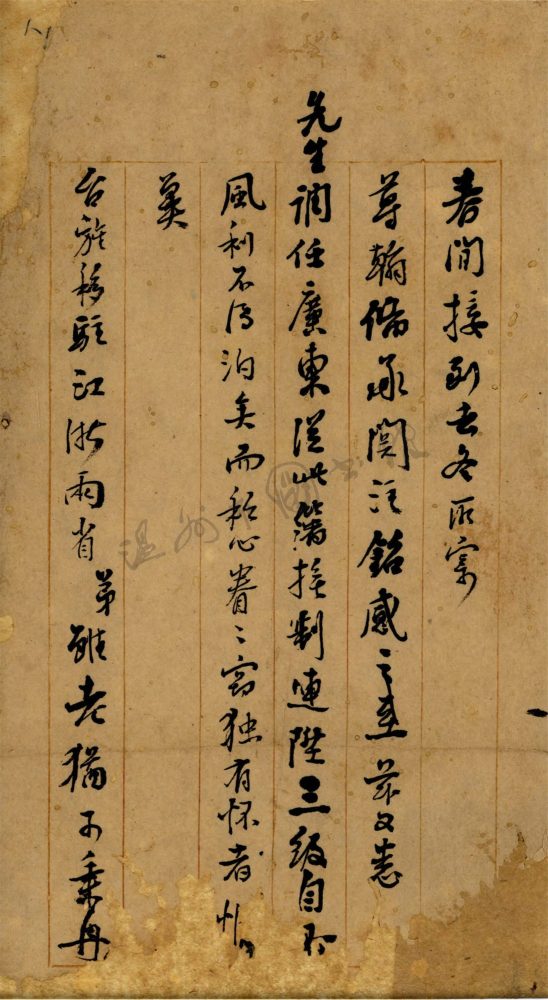 春间接到去冬所寄
尊翰備承關注銘感之至茲又悉
先生調任廣東從此藩接制連陞三級自不
風利不得泊矣而私心眷〻窃独有怀者
冀
台旌移駐江浙兩省弟雖老猶可乘舟
温州圖書館